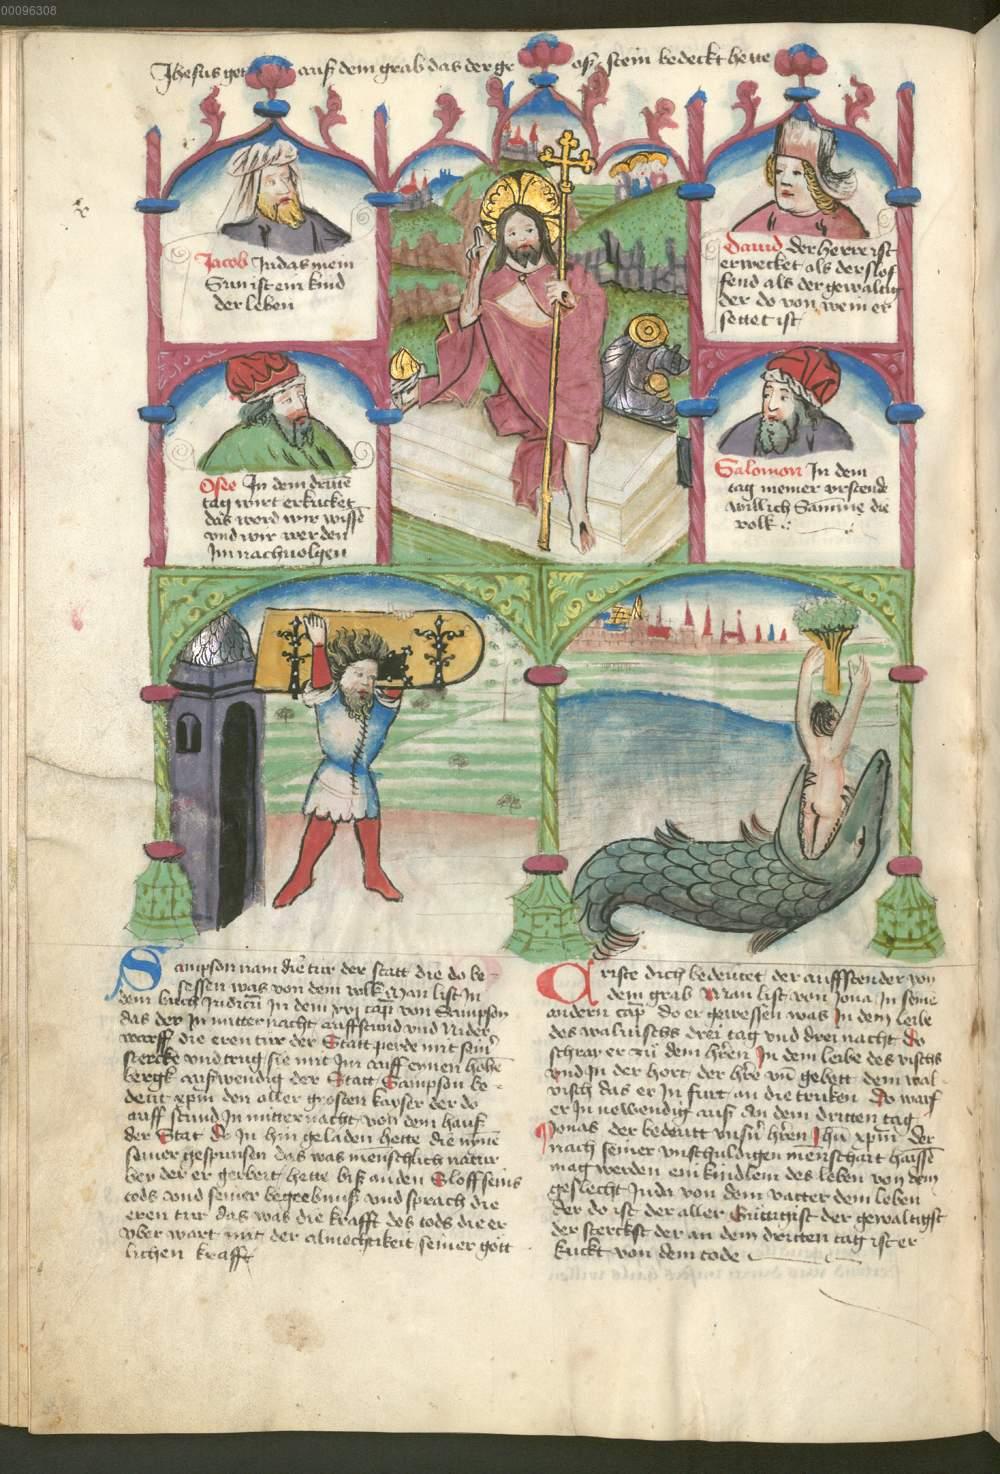 00096308
Jhesus get auß dem grab das der gr oß stein bedeckt hette
Jacob Judas mein
Sun ist ein kind
der leben
Dauid der herre ist
erwecket als der slof
fend als der gewaltig
der do von wein er
settet ist
Osee In dem dritte
tag wirt erkucket
das word wir wissē
vnd wir werden
Im nachuolgen
Salomon In dem
tag meiner vrstende
will ich Samme die
volk
Sampson nam die tür der statt die do be-
sessen was von dem volk Man list in
dem buch Judicū In dem xvj cap von Sampson
das der In mitternacht auffstund vnd nider
warff die eren tür der Statt peyde mit seinr
stercke vnd trug sie mit Im auff einen hohē
bergk auswendig der Statt Sampson be
deüt xpm den aller grosten kayser der do
auff stund In mitternacht von dem hauß
der Stat do In hin geladen hette die
seiner gespunsen das was menschlich natur
bey der er geherbergt hette biß an den Sloff seins
tods vnd seiner begrebnuß vnd sprach die
eren tür das was die krafft des tods die er
vber wart mit der almechtikeit seiner gött
lichen krafft
Criste dich bedeütet der aufferstender von
dem grab Man list von Jona In seinē
andern cap do er gewessen was In dem leibe
des walvischs drei tag vnd drei nacht do
schray er zü dem hren In dem leibe des vischs
vnd In der hort der hre vn gebett dem wal
visch das er In fürt an die trüken do warf
er In newendig auß an dem dritten tag
Jonas der bedeütt vnsn hren Jhu xpm der
nach seiner vnschuldigen menschait haissē
mag werden ein kindlein des leben von dem
geslecht Juda von dem vatter dem leben
der do ist der aller Gütigist der gewaltigst
der sterckst der an dem dritten tag ist er
kückt von dem tode